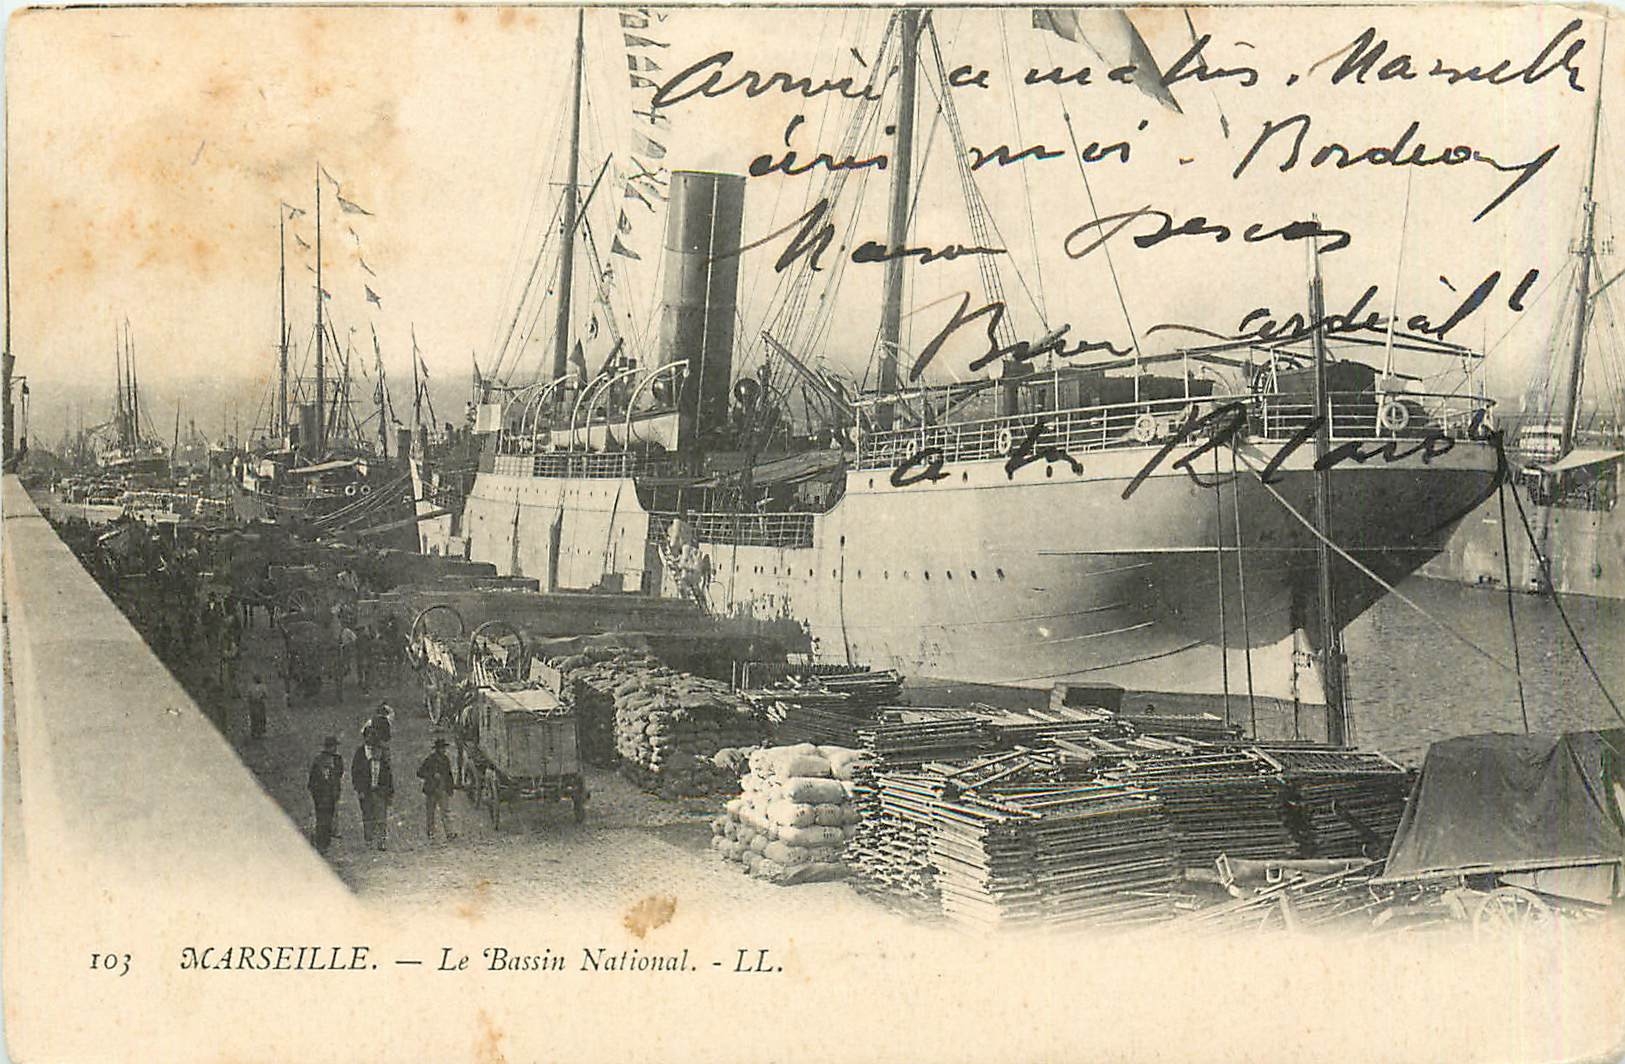 Arrivé ce matin. Marseille
écris moi. Bordeaux
Maison
Bien cordial^t
a toi
103 MARSEILLE. — Le Bassin National. - LL.